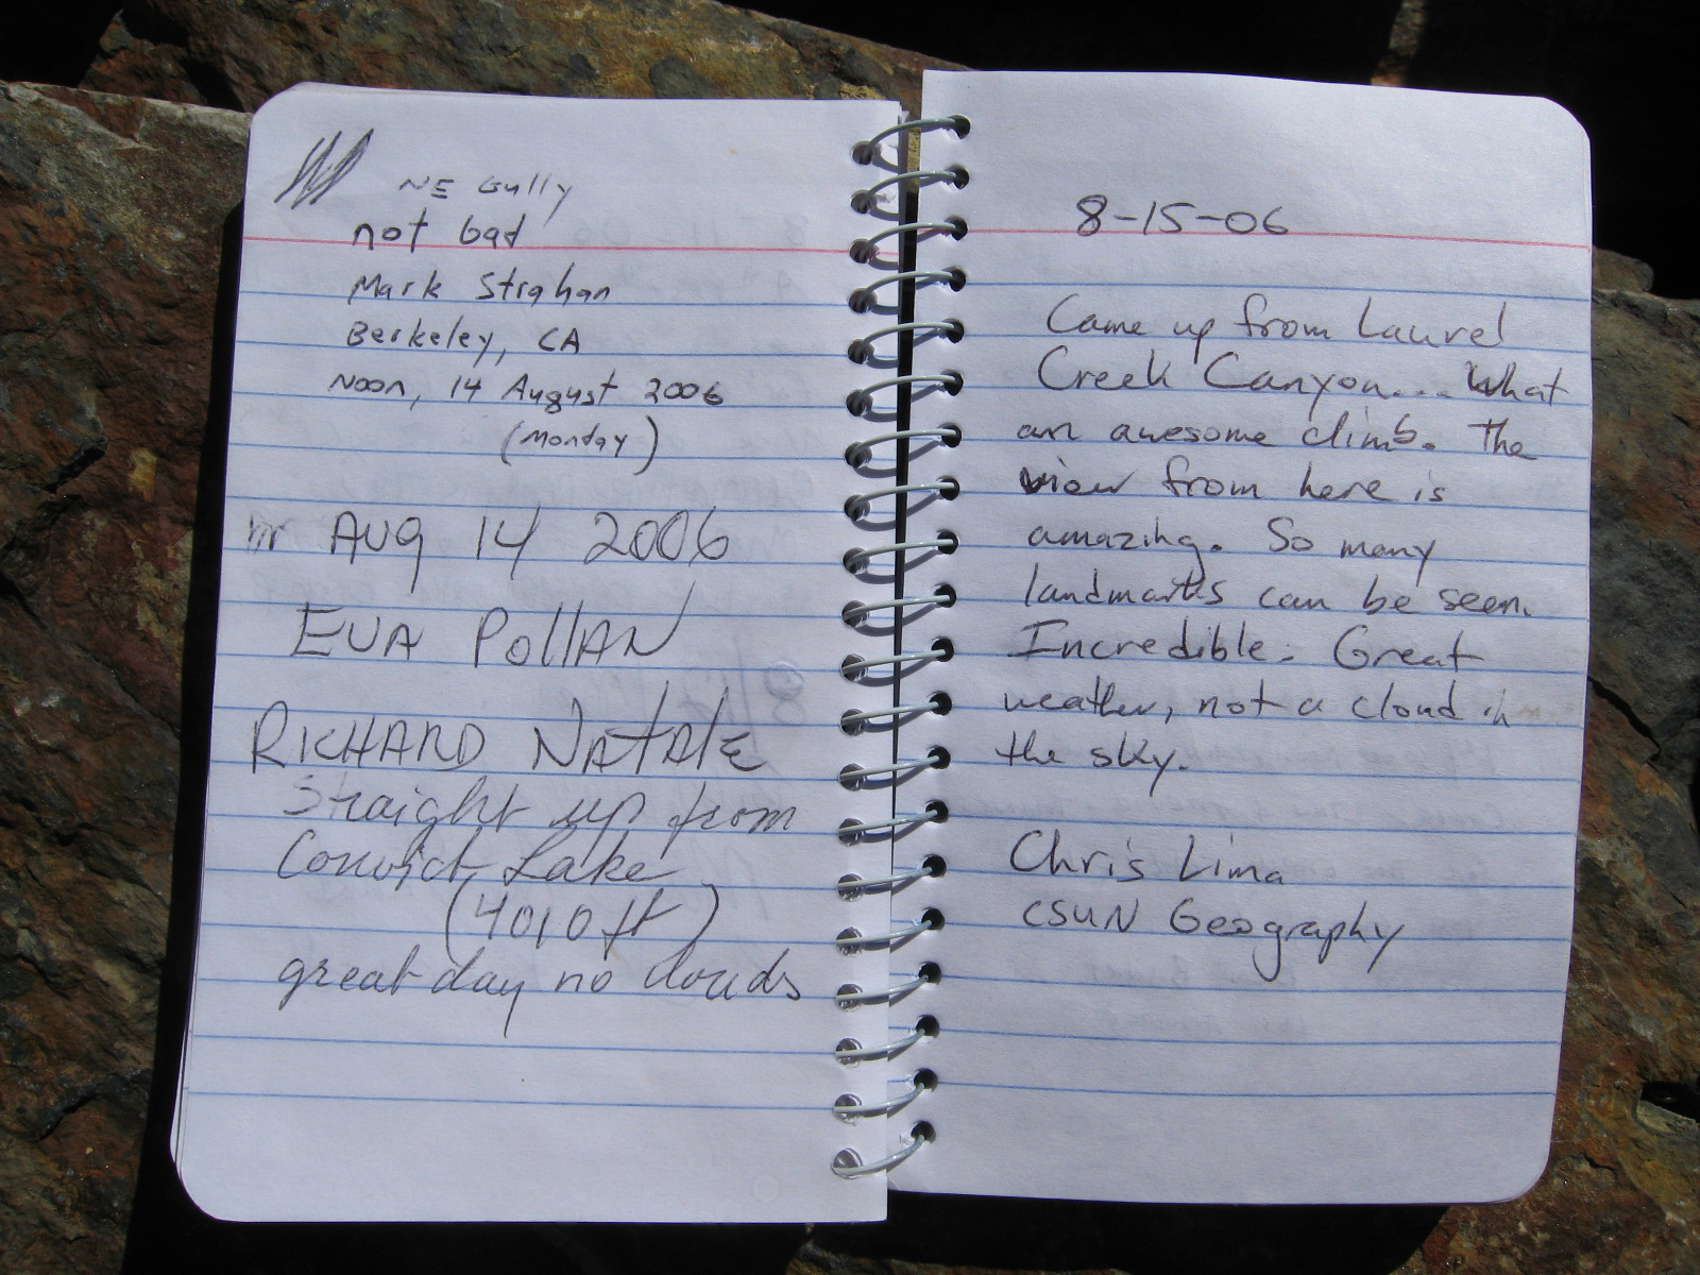 NE Gully
not bad
Mark Strahan
Berkeley, CA
Noon, 14 August 2006
(Monday)
AUG 14 2006
EVA POllAN
RICHARD NATAlE
Straight up from
Convict Lake
(4010 ft)
great day no clouds
8-15-06
Came up from Laurel
Creek Canyon... What
an awesome climb. The
view from here is
amazing. So many
landmarks can be seen.
Incredible. Great
weather, not a cloud in
the sky.
Chris Lima
CSUN Geography